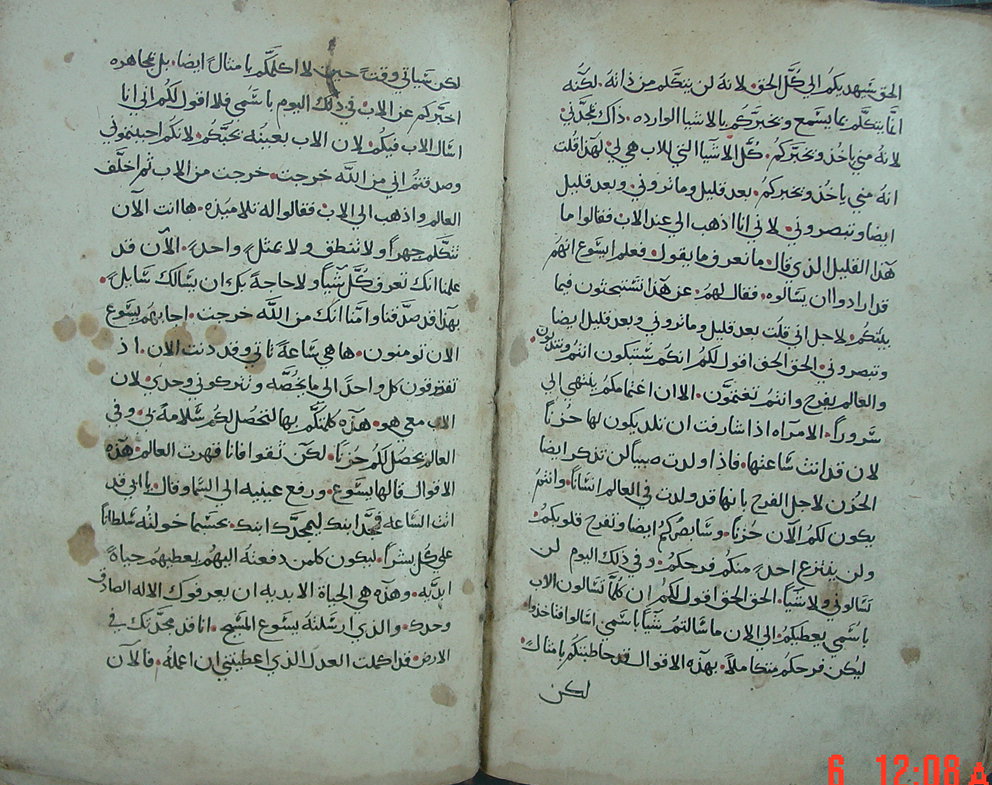 الحق شهديكم الي كُل الحق. لانهُ لن يتكلم من ذاتهُ. لكنُه
انما يتكلم بما يسمع ويخبركم بالاشيا الوارده. ذاك يمجدني
لانهُ مني ياخذ ويخبركم. كل الاشيا التي للاب هي لي. لهذا قلت
انه مني ياخذ ويخبركم. بعد قليل وما تروني. وبعد قليل
ايضا وتبصروني. لاني انا اذهب الي عند الاب. فقالوا ما
هذا القليل الذي قال. ما نعرف ما يقول. فعلم ايسوع انهم
قد ارادوا ان يسالوه. فقال لهم. عن هذا تستبحثون فيما
بينكم. لاجل اني قلت بعد قليل وما تروني وبعد قليل ايضا
وتبصروني. الحق الحق اقول لكم انكم ستبكون انتم وتندبون
والعالم يفرح وانتم تغتمون. الا ان اغتمامكم ينتهي الي
سروراً. الامراه اذا شارفت ان تلد يكون لها حُزناً
لان قد اتت ساعتها. فاذا ولدت صبياً لن تذكر ايضا
الحُزن لاجل الفرح بانها قد ولدت في العالم انساناً. وانتمُ
يكون لكمُ الآن حُزناً. وسابصُركم ايضا وتفرح قلوبكم.
ولن ينتزع احدٍ منكم فرحكم. وفي ذلك اليوم لن
تسالوني ولا شياً. الحق الحق اقول لكم ان كلما تسالون الاب
باسمي يعطيكم. الي الان ما سالتم شياً باسمي اسالوا فتاخذوا
ليكن فرحكم متكاملاً. بهذه الاقوال قد خاطبتكم بامثال.
لكن
لكن سياتي وقتً حين لا اكلمكم بامثالٍ ايضا. بل مجاهره
اخبركم عن الاب. في ذلك اليوم باسمي فلا اقول لكم اني انا
اسال الاب فيكم. لان الاب بعينه يحبكم. لانكم احببتموني
وصدقتم اني من اللّه خرجت. خرجت من الاب ثم اخلف
العالم واذهب الي الاب. فقالوا له تلاميذه. ها انت الان
تتكلم جهراً ولا تنطق ولا بمثلٍ واحدٍ. الآن قد
علمنا انك تعرف كُل شياً ولا حاجة بك ان يسالك سايلٍ.
بهذا قد صدقنا وامنا انك من اللّه خرجت. اجابهم يسوع
الان تومنون. ها هي ساعة تاتي وقد دنت الان. اذ
تفترقون كل واحدً الي ما يخصُه وتتركوني وحدي. لان
الاب معي هو. هذه كلمتكم بها لتحصل لكم سلامة لي. وفي
العالم يحصل لكم حزناً. لكن ثقوا فانا قهرت العالم. هذه
الاقوال قالها يسوع. ورفع عينيه الي السما وقال. يا ابي قد
اتت الساعه فمجد ابنك ليمجدك ابنك. بحسبما خولته سلطاناً
علي كُل بشراً. ليكون كلمن دفعته اليهم يعطيهم حياةً
ابديه. وهذه هي الحياة الابديه ان يعرفوك الاله الصادق
وحدك. والذي ارسلته يسوع المسيح. انا قد مجدتك في
الارض. قد اكملت العمل الذي اعطيتني ان اعمله. فالآن
6 12:08 A